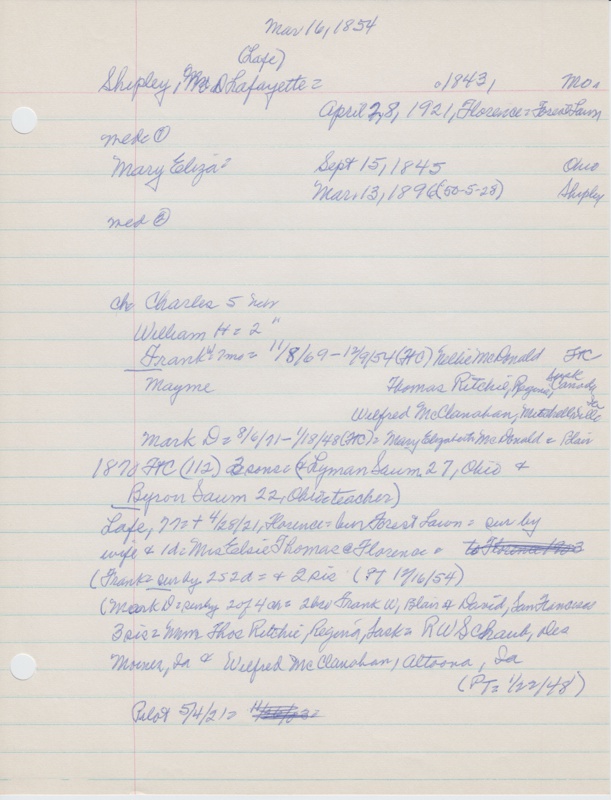 Mar 16, 1854
(Lafe)
Shipley, Mc D Lafayette = 1843, Mo.
April 28, 1921, Florence = Forest Lawn
med ①
Mary Eliza = Sept 15, 1845 Ohio
Mar. 13, 1896 (50-5-28) Shipley
med ②
ch Charles 5 Nev
William H = 2 "
Frank W 7mo = 11/8/69 - 12/9/54 (FC) Nellie McDonald FC
Mayme Thomas Ritchie, Regina, Sask Canada
Wilfred McClanahan, Mitchellville Ia
Mark D = 8/6/71 - 1/18/48 (FC) = Mary Elizabeth McDonald = Blair
1870 FC (112) 3 sons & (Lyman Saum 27, Ohio &
Byron Saum 22, Ohio teacher)
Lafe, 77 = + 4/28/21, Florence = bur Forest Lawn = sur by
wife & 1d = Mrs Elsie Thomas @ Florence = to Florence 1903
(Frank = sur by 2s 2d = & 2 sis (PT 12/16/54)
(Mark D = sur by 2 of 4 ch = 2 bro Frank W, Blair & David, San Francisco
3 sis = Mmm Thos Ritchie, Regina, Sask = R W Schaub, Des
Moines, Ia & Wilfred McClanahan, Altoona, Ia
(PT = 1/22/48)
Pilot 5/4/21 =